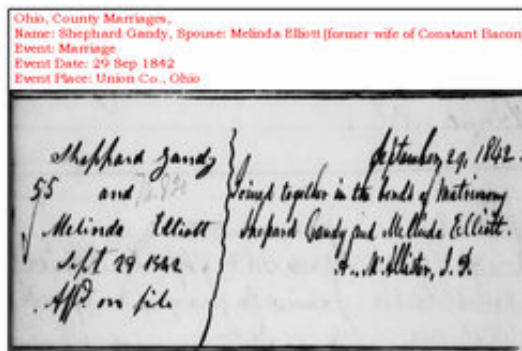 Ohio, County Marriages,
Name: Shephard Gandy, Spouse: Melinda Elliott (former wife of Constant Bacon)
Event: Marriage
Event Date: 29 Sep 1842
Event Place: Union Co., Ohio
Sheppard Gandy
55 and
Melinda Elliott
Sept 29 1842
Affd on file
September 29, 1842.
Joined together in the bonds of Matrimony
Shepard Gandy and Mellinda Elliott.
A. McAllister, J. P.